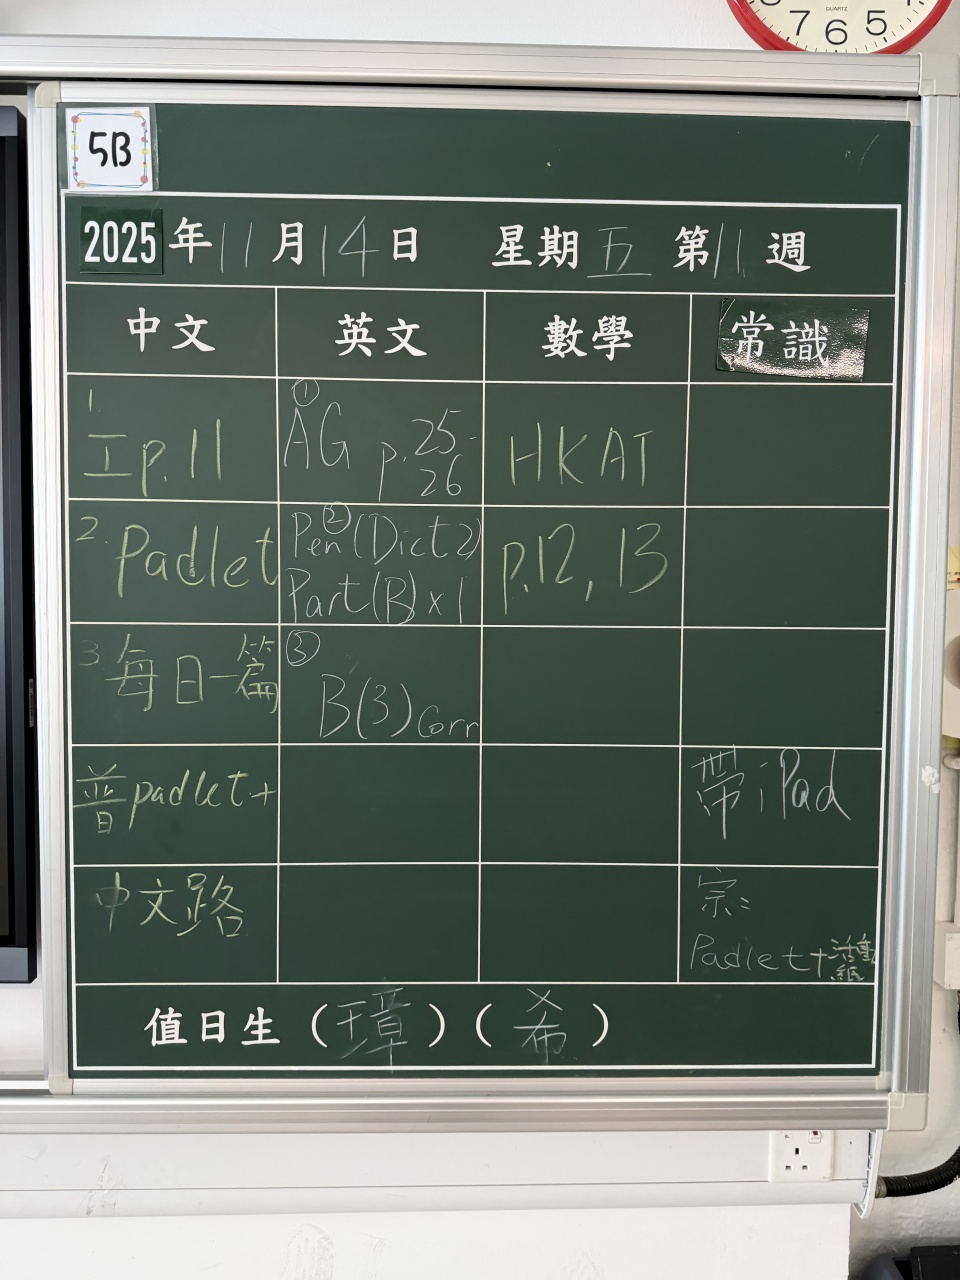 7 6 5
QUARTZ
5B
2025年11月14日 星期五 第11週
中文 英文 數學 常識
1.
工p.11
①
AG p.25-
26
HKAT
2. Padlet
②
Pen (Dict 2)
Part (B) x 1
p.12, 13
3 每日一篇
③
B(3) Corr
普padlet+
帶iPad
中文路
宗:
Padlet+活動
紙
值日生（璋）（希）